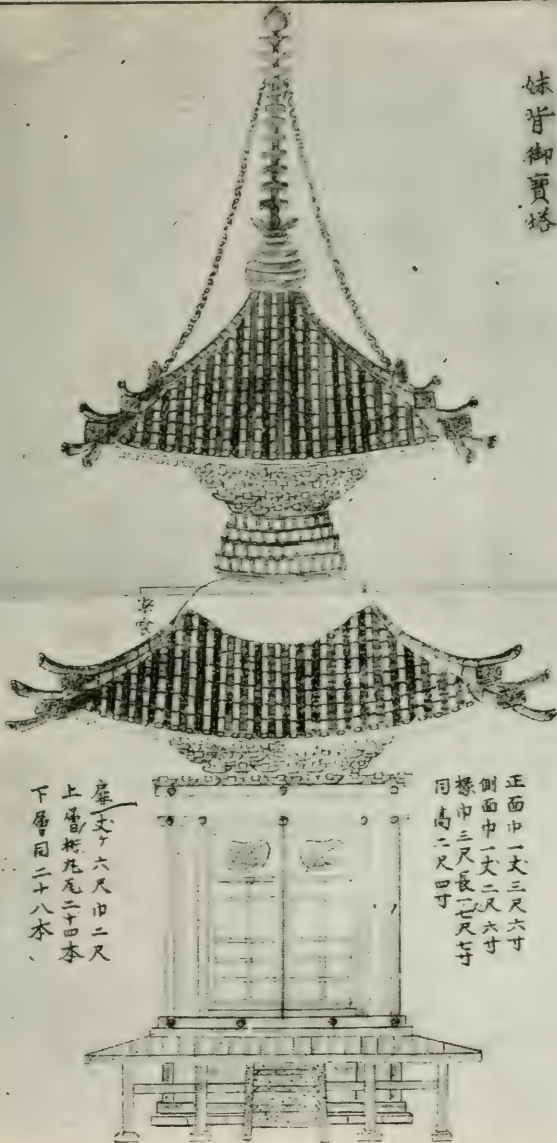 妹背御寶塔
正面巾一丈三尺六寸
側面巾一丈二尺六寸
椽巾三尺長一七尺七寸
同高二尺四寸
扉丈ケ六尺巾二尺
上層 丸瓦二十四本
下層同二十八本